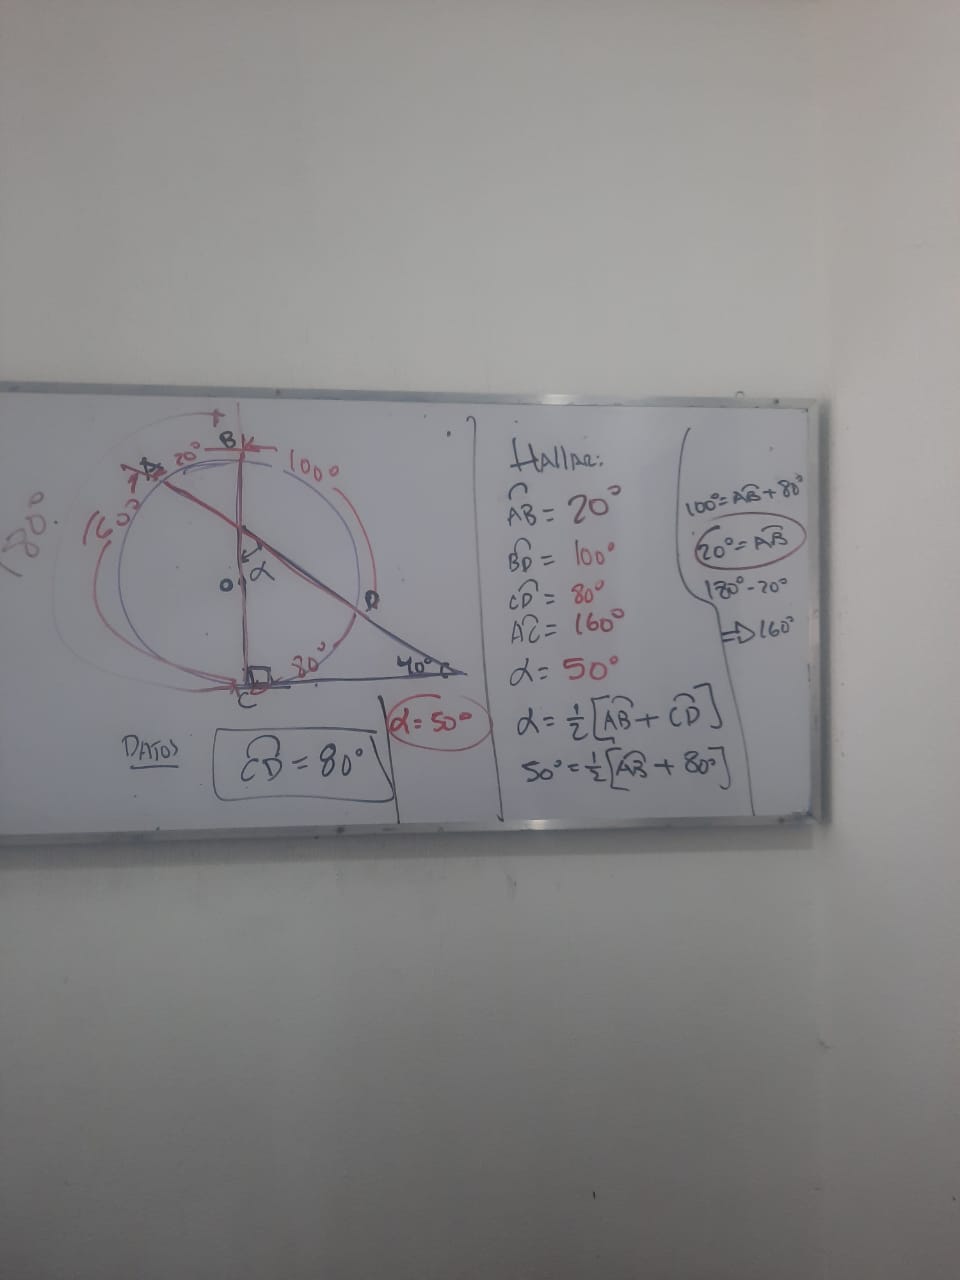 B
A
20°
100°
160°
180°
α
O
D
80°
40°
C
DATOS
CD = 80°
α = 50°
HALLAR:
AB = 20°
BD = 100°
CD = 80°
AC = 160°
α = 50°
α = 1/2 [AB + CD]
50° = 1/2 [AB + 80°]
100° = AB + 80°
20° = AB
180° - 20°
⇒ 160°